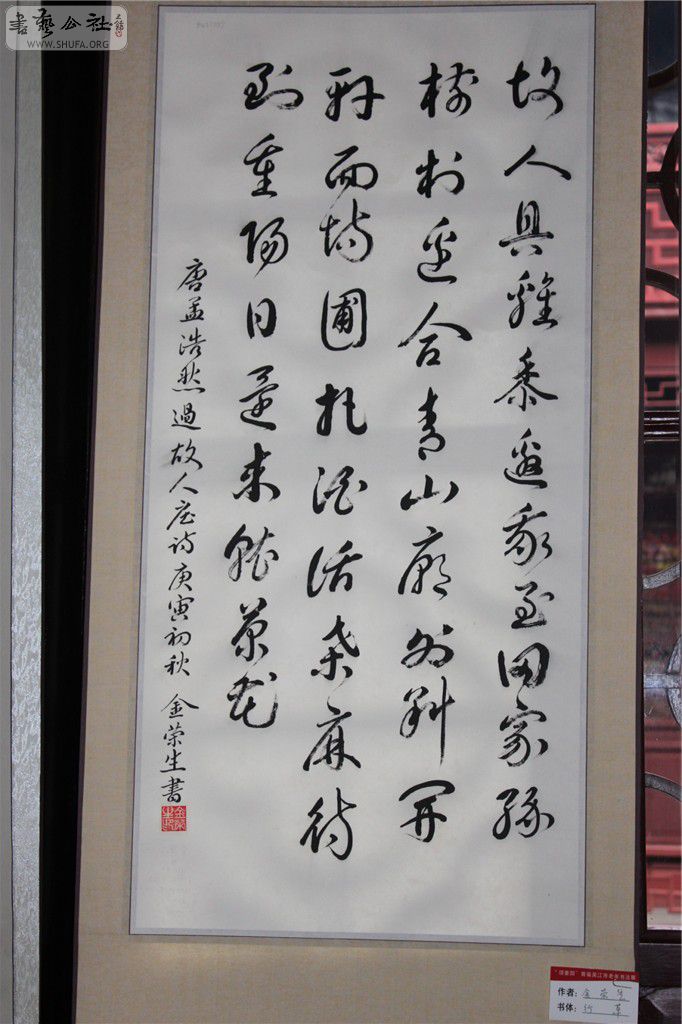 書藝公社
WWW.SHUFA.ORG
故人具雞黍邀我至田家綠
樹村邊合青山廓外斜開
軒面場圃把酒話桑麻待
到重陽日還來就菊花
唐孟浩然過故人庄詩庚寅初秋 金荣生書
首届吴江市老年书法展
作者：金荣生
书体：行草